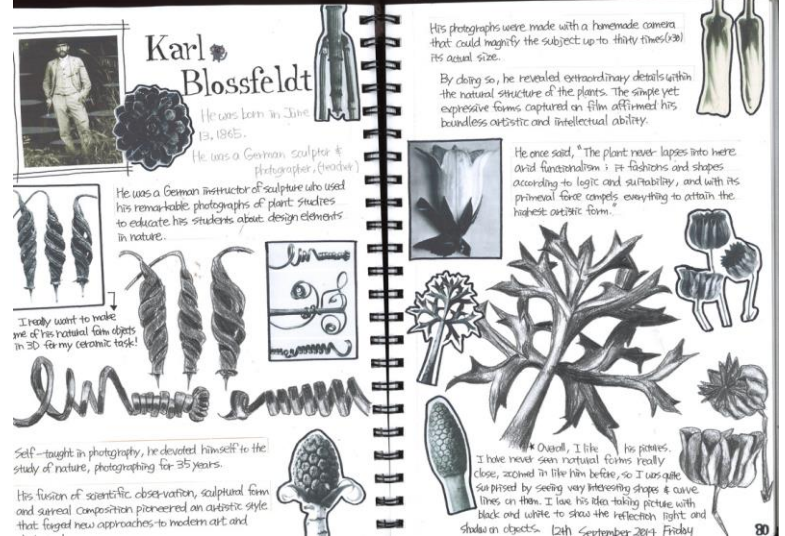 Karl
Blossfeldt
He was born in June
13, 1865.
He was a German sculptor &
photographer, (teacher)
He was a German instructor of sculpture who used
his remarkable photographs of plant studies
to educate his students about design elements
in nature.
I really want to make
me of his natural form objects
in 3D for my ceramic task!
Self-taught in photography, he devoted himself to the
study of nature, photographing for 35 years.
His fusion of scientific observation, sculptural form
and surreal composition pioneered an artistic style
that forged new approaches to modern art and
His photographs were made with a homemade camera
that could magnify the subject up to thirty times (x30)
its actual size.
By doing so, he revealed extraordinary details within
the natural structure of the plants. The simple yet
expressive forms captured on film affirmed his
boundless artistic and intellectual ability.
He once said, "The plant never lapses into mere
arid functionalism ; it fashions and shapes
according to logic and suitability, and with its
primeval force compels everything to attain the
highest artistic form."
* Overall, I like his pictures.
I have never seen natural forms really
close, zoomed in like him before, so I was quite
surprised by seeing very interesting shapes & curve
lines on them. I love his idea taking picture with
black and white to show the reflection light and
shadow on objects. 12th September 2014 Friday
80